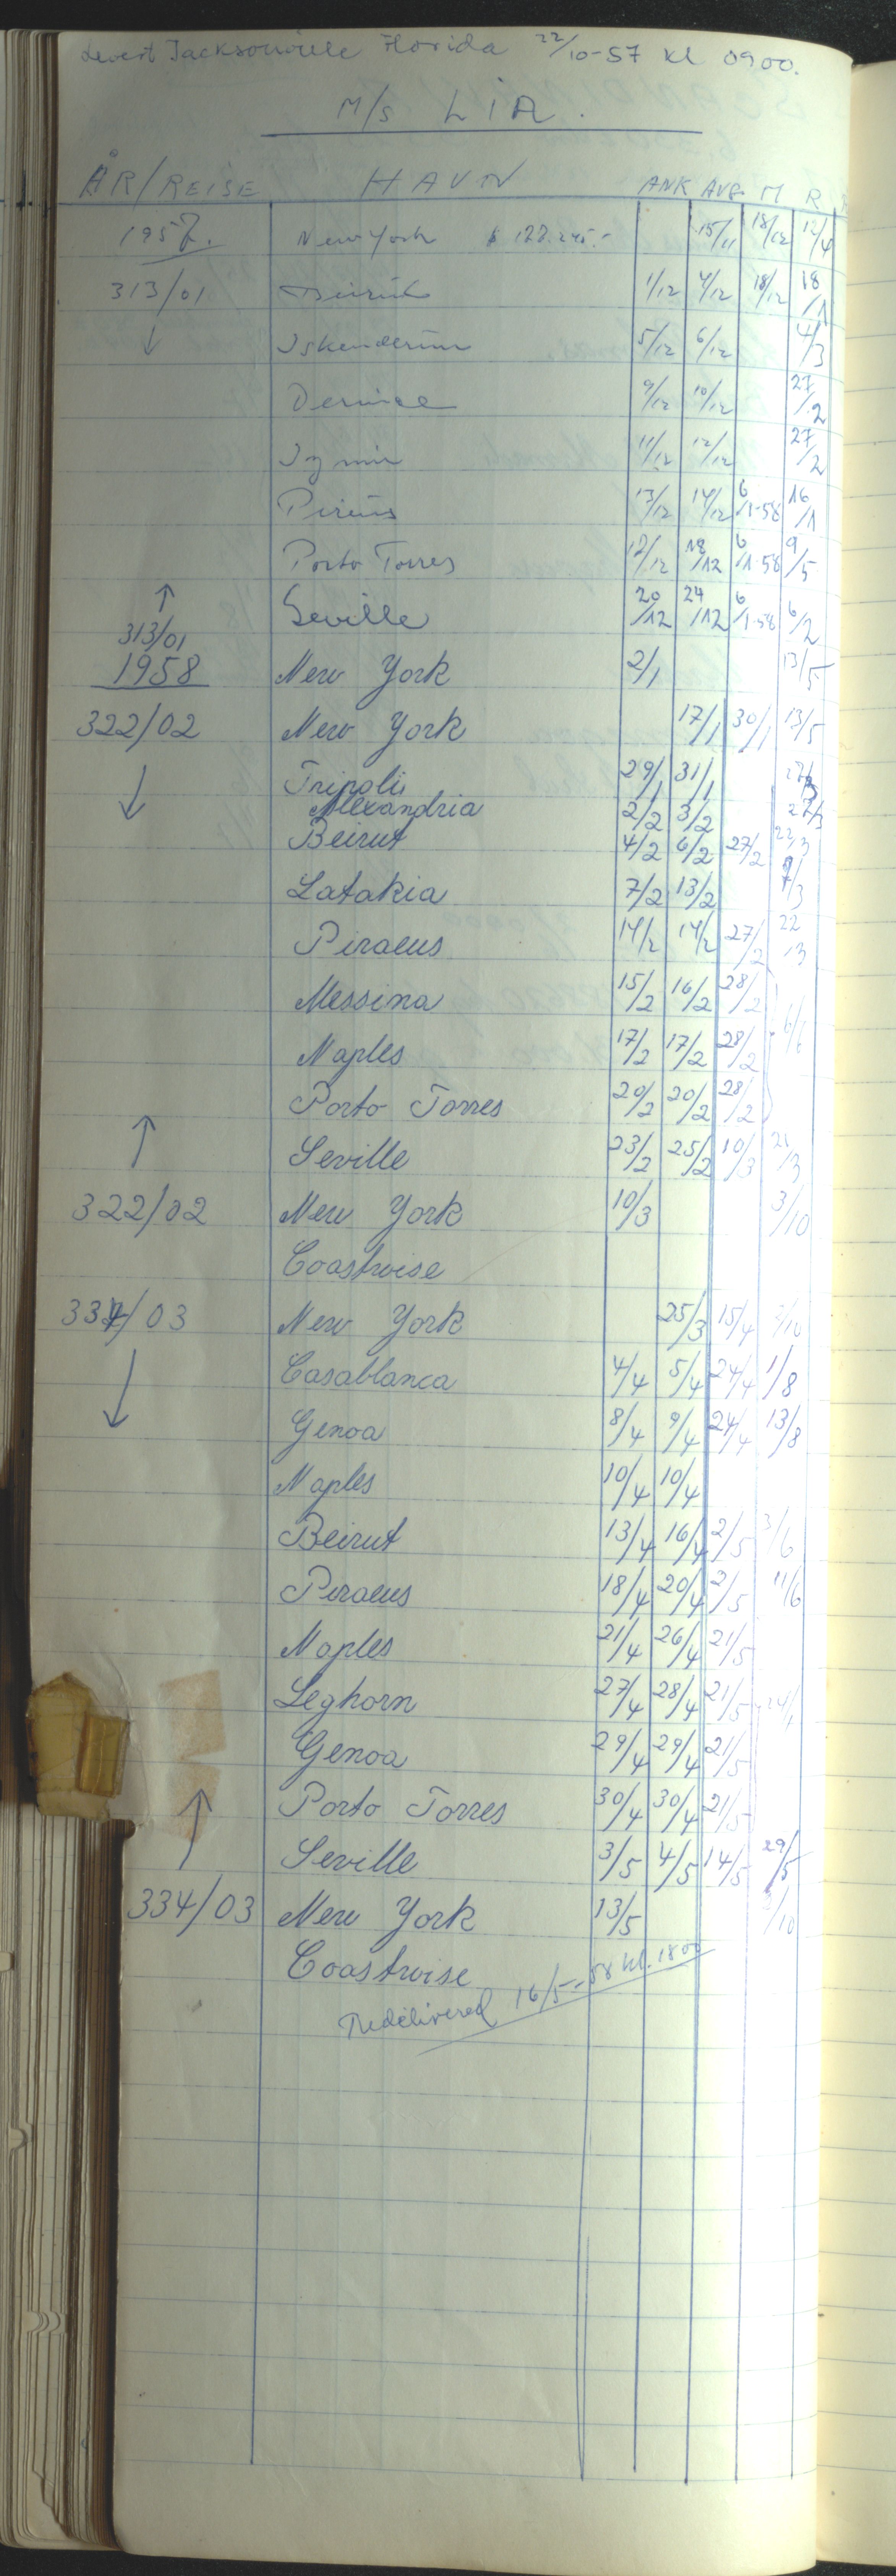 Levert Jacksonville Florida 22/10-57 kl 0900.
M/S LIA.
ÅR/REISE HAVN ANK AVG. M R
1957. New York $ 15/11 18/12 12/4
313/01 Beirut 1/12 4/12 18/12 18/1
↓ Iskenderun 5/12 6/12 4/3
Derince 9/12 10/12 27/2
Izmir 11/12 12/12 27/2
Pireus 13/12 14/12 6/1-58 16/1
Porto Torres 17/12 18/12 6/1-58 9/5
↑ Seville 20/12 24/12 6/1-58 6/2
313/01
1958 New York 2/1 13/5
322/02 New York 17/1 30/1 13/5
↓ Tripolis 29/1 31/1
Alexandria 2/2 3/2 22/3
Beirut 4/2 6/2 27/2 22/3
Latakia 7/2 13/2
Piraeus 14/2 14/2 27/2 22/3
Messina 15/2 16/2 28/2
Naples 17/2 17/2 28/2 6/6
Porto Torres 20/2 20/2 28/2
↑ Seville 23/2 25/2 10/3 21/3
322/02 New York 10/3 3/10
Coastwise
334/03 New York 25/3 15/4 3/10
↓ Casablanca 4/4 5/4 24/4 1/8
Genoa 8/4 9/4 24/4 13/8
Naples 10/4 10/4
Beirut 13/4 16/4 2/5 3/6
Piraeus 18/4 20/4 2/5 11/6
Naples 21/4 26/4 21/5
Leghorn 27/4 28/4 21/5
Genoa 29/4 29/4 21/5
↑ Porto Torres 30/4 30/4 21/5
Seville 3/5 4/5 14/5 29/5
334/03 New York 13/5 3/10
Coastwise
Redelivered 16/5-58 kl. 1800